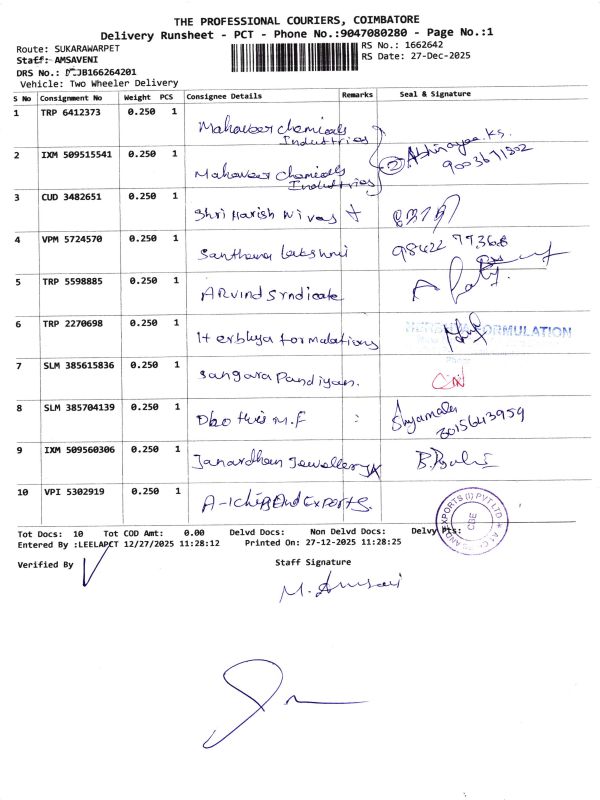 THE PROFESSIONAL COURIERS, COIMBATORE
Delivery Runsheet - PCT - Phone No.:9047080280 - Page No.:1
Route: SUKARAWARPET
RS No.: 1662642
Staff: AMSAVENI
RS Date: 27-Dec-2025
DRS No.: JB166264201
Vehicle: Two Wheeler Delivery
S No Consignment No Weight PCS Consignee Details Remarks Seal & Signature
1 TRP 6412373 0.250 1 Mahaveer chemicals Industries
2 IXM 509515541 0.250 1 Mahaveer Chemicals Industries
② Abhinayaa.K.S.
3 CUD 3482651 0.250 1 Shri Harish Nivas
4 VPM 5724570 0.250 1 Santhana lakshmi
5 TRP 5598885 0.250 1 ARvind Syndicate
6 TRP 2270698 0.250 1 formulations FORMULATION
7 SLM 385615836 0.250 1 Sangara Pandiyan.
8 SLM 385704139 0.250 1 M.F Shyamala
9 IXM 509560306 0.250 1 Janardhan Jewellery
10 VPI 5302919 0.250 1 Exports.
EXPORTS (I) PVT LTD
CBE
Tot Docs: 10 Tot COD Amt: 0.00 Delvd Docs: Non Delvd Docs: Delvy
Entered By :LEELAPCT 12/27/2025 11:28:12 Printed On: 27-12-2025 11:28:25
Verified By
Staff Signature